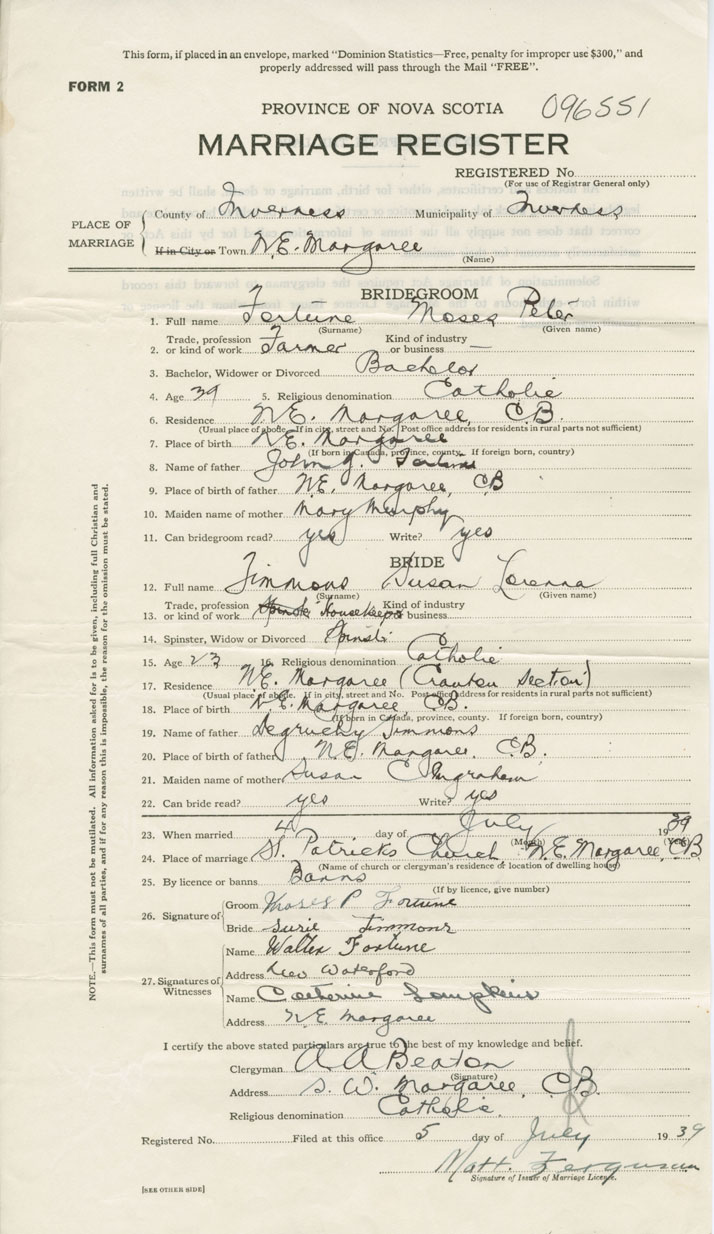 This form, if placed in an envelope, marked "Dominion Statistics—Free, penalty for improper use $300," and
properly addressed will pass through the Mail "FREE".
FORM 2
PROVINCE OF NOVA SCOTIA 096551
MARRIAGE REGISTER
REGISTERED No.
(For use of Registrar General only)
PLACE OF MARRIAGE
County of Inverness Municipality of Inverness
If in City or Town N.E. Margaree
(Name)
BRIDEGROOM
1. Full name Fortune Moses Peter
(Surname) (Given name)
Trade, profession Kind of industry
2. or kind of work Farmer or business —
3. Bachelor, Widower or Divorced Bachelor
4. Age 39 5. Religious denomination Catholic
6. Residence N.E. Margaree, C.B.
(Usual place of abode. If in city, street and No. Post office address for residents in rural parts not sufficient)
7. Place of birth N.E. Margaree
(If born in Canada, province, county. If foreign born, country)
8. Name of father John J. Fortune
9. Place of birth of father N.E. Margaree, CB
10. Maiden name of mother Mary Murphy
11. Can bridegroom read? yes Write? yes
BRIDE
12. Full name Timmons Susan Lorenna
(Surname) (Given name)
Trade, profession Kind of industry
13. or kind of work Spinst Housekeeper or business
14. Spinster, Widow or Divorced Spinst.
15. Age 23 16. Religious denomination Catholic
17. Residence N.E. Margaree (Cranton Section)
(Usual place of abode. If in city, street and No. Post office address for residents in rural parts not sufficient)
18. Place of birth N.E. Margaree, C.B.
(If born in Canada, province, county. If foreign born, country)
19. Name of father Degruchy Timmons
20. Place of birth of father N.E. Margaree, C.B.
21. Maiden name of mother Susan C Ingraham
22. Can bride read? yes Write? yes
23. When married 4 day of July 1939
(Month) (Year)
24. Place of marriage St. Patricks Church N.E. Margaree, CB
(Name of church or clergyman's residence or location of dwelling house)
25. By licence or banns Banns
(If by licence, give number)
26. Signature of
Groom Moses P Fortune
Bride Susie Timmons
27. Signatures of Witnesses
Name Walter Fortune
Address New Waterford
Name Catherine Tompkins
Address N.E. Margaree
I certify the above stated particulars are true to the best of my knowledge and belief.
Clergyman A A Beaton
(Signature)
Address S. W. Margaree, C.B.
Religious denomination Catholic.
Registered No. Filed at this office 5 day of July 1939
Matt. Ferguson
Signature of Issuer of Marriage License.
[SEE OTHER SIDE]
NOTE.—This form must not be mutilated. All information asked for is to be given, including full Christian and
surnames of all parties, and if for any reason this is impossible, the reason for the omission must be stated.